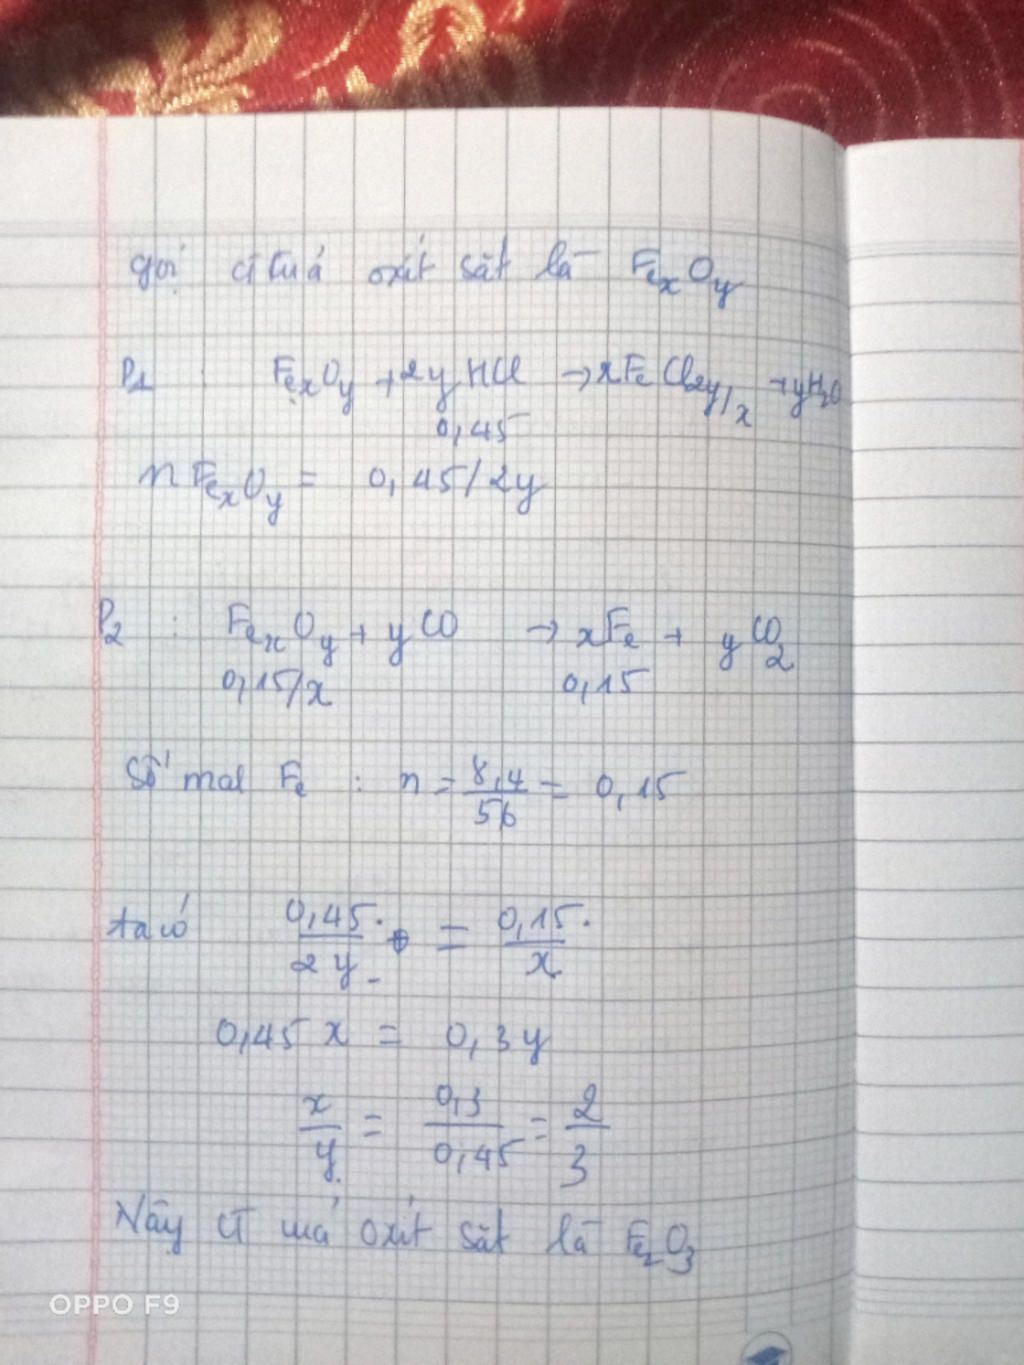 gọi CT của oxit sắt là FexOy
P1 FexOy + 2y HCl → xFeCl2y/x + yH2O
0,45
n FexOy = 0,45/2y
P2 : FexOy + y CO → xFe + y CO2
0,15/x 0,15
Số mol Fe : n = 8,4/56 = 0,15
ta có 0,45/2y = 0,15/x
0,45 x = 0,3y
x/y = 0,3/0,45 = 2/3
Vậy CT của oxit sắt là Fe2O3
OPPO F9